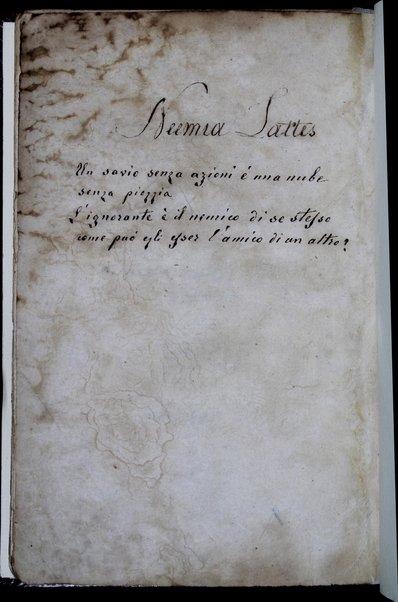 Neemia Lattes
Un savio senza azioni è una nube
senza pioggia
L'ignorante è il nemico di se stesso
come può egli esser l'amico di un altro?